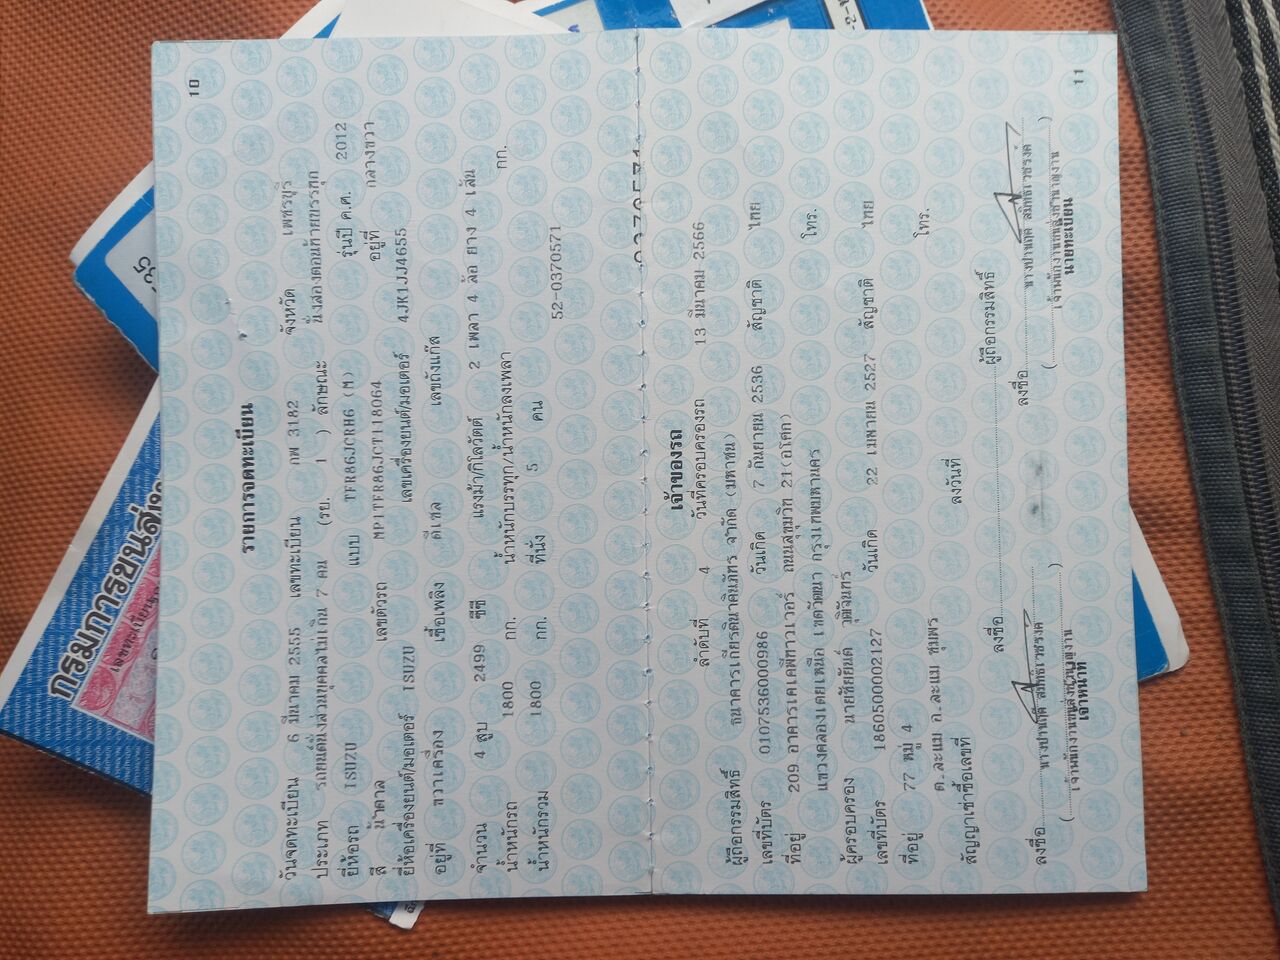 10
รายการจดทะเบียน
วันจดทะเบียน 6 มีนาคม 2555 เลขทะเบียน กพ 3182 จังหวัด เพชรบุรี
ประเภท รถยนต์นั่งส่วนบุคคลไม่เกิน 7 คน (รย. 1 ) ลักษณะ นั่งสองตอนท้ายบรรทุก
ยี่ห้อรถ ISUZU แบบ TFR86JCRH6 (M) รุ่นปี ค.ศ. 2012
สี น้ำตาล เลขตัวรถ MP1TFR86JCT118064 อยู่ที่ กลางขวา
ยี่ห้อเครื่องยนต์/มอเตอร์ ISUZU เลขเครื่องยนต์/มอเตอร์ 4JK1JJ4655
อยู่ที่ ขวาเครื่อง เชื้อเพลิง ดีเซล เลขถังแก๊ส
จำนวน 4 สูบ 2499 ซีซี แรงม้า/กิโลวัตต์ 2 เพลา 4 ล้อ ยาง 4 เส้น
น้ำหนักรถ 1800 กก. น้ำหนักบรรทุก/น้ำหนักลงเพลา กก.
น้ำหนักรวม 1800 กก. ที่นั่ง 5 คน
52-0370571
เจ้าของรถ
ลำดับที่ 4 วันที่ครอบครองรถ 13 มีนาคม 2566
ผู้ถือกรรมสิทธิ์ ธนาคารเกียรตินาคินภัทร จำกัด (มหาชน)
เลขที่บัตร 0107536000986 วันเกิด 7 กันยายน 2536 สัญชาติ ไทย
ที่อยู่ 209 อาคารเคเคพีทาวเวอร์ ถนนสุขุมวิท 21(อโศก)
แขวงคลองเตยเหนือ เขตวัฒนา กรุงเทพมหานคร โทร.
ผู้ครอบครอง นายชัยยันต์ วุฒิจันทร์
เลขที่บัตร 1860500002127 วันเกิด 22 เมษายน 2527 สัญชาติ ไทย
ที่อยู่ 77 หมู่ 4
ต.ละแม อ.ละแม ชุมพร โทร.
สัญญาเช่าซื้อเลขที่ ลงวันที่
ลงชื่อ ผู้ถือกรรมสิทธิ์
ลงชื่อ ลงชื่อ
เจ้าพนักงานขนส่งชำนาญงาน เจ้าพนักงานขนส่งชำนาญงาน
เจ้าหน้าที่ นายทะเบียน
11
กรมการขนส่ง